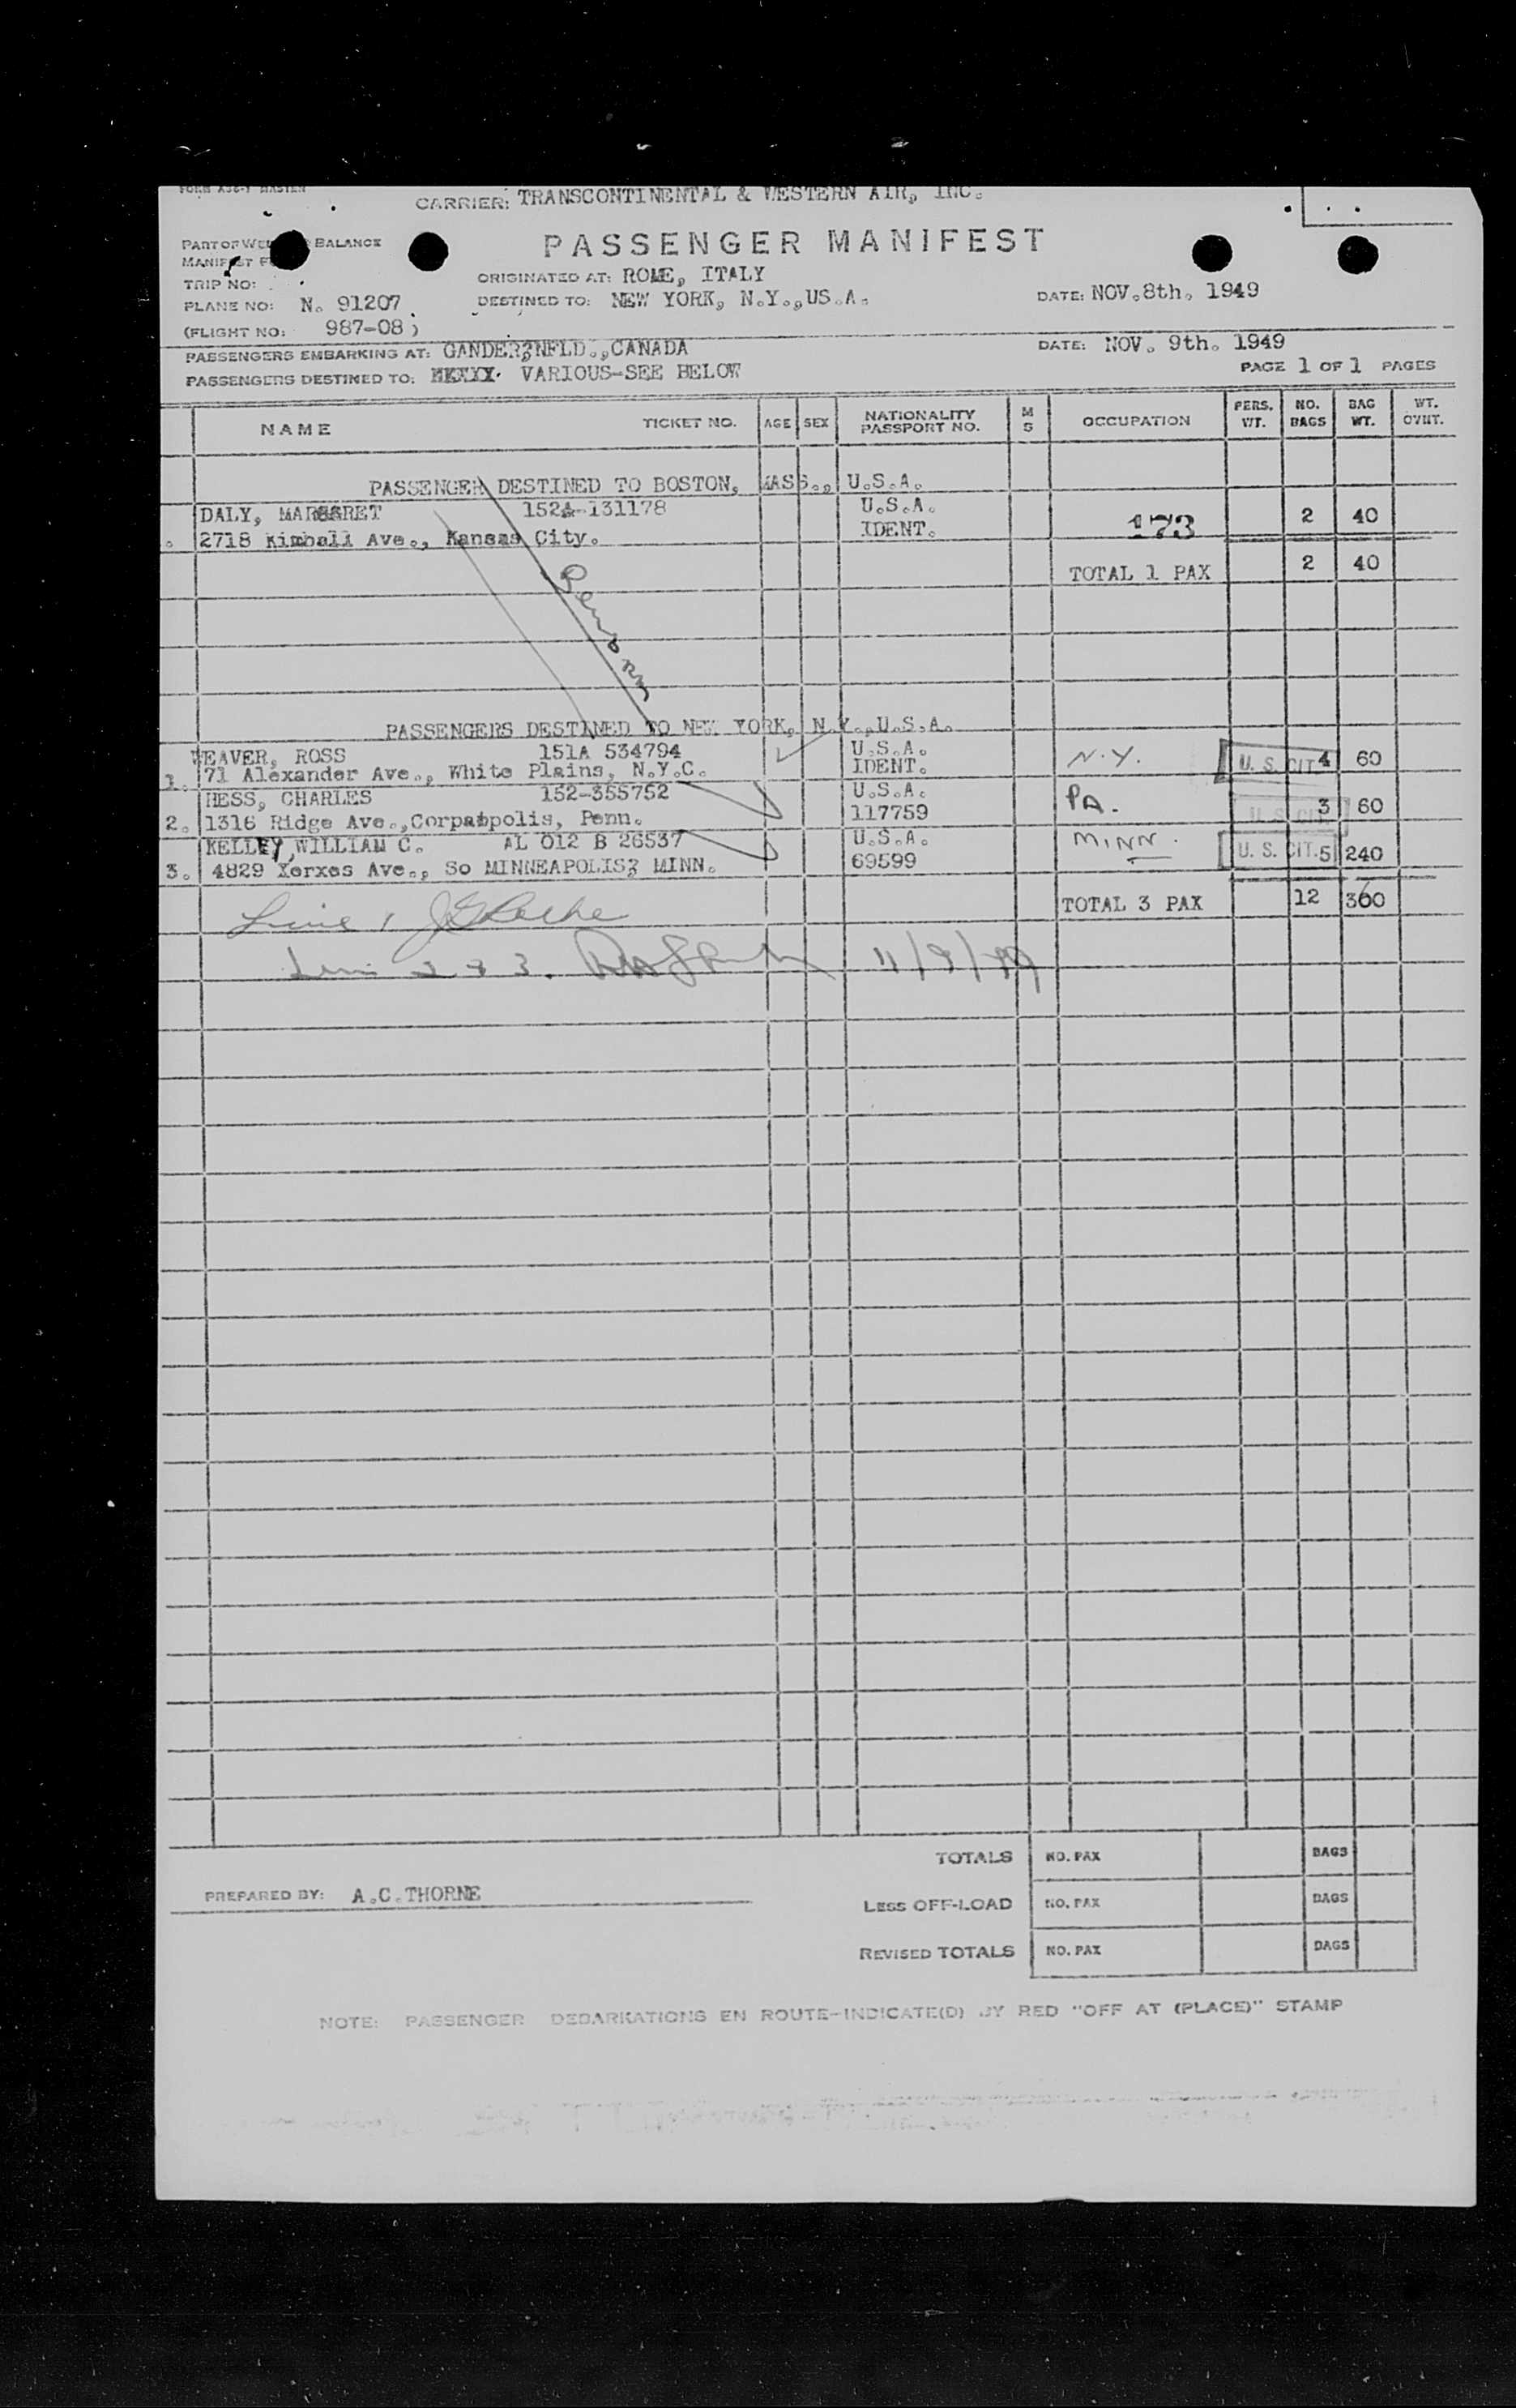 FORM A36-1 MASTER
CARRIER: TRANSCONTINENTAL & WESTERN AIR, INC.
PASSENGER MANIFEST
PART OF BALANCE
MANIFEST
TRIP NO:
ORIGINATED AT: ROME, ITALY
PLANE NO: N. 91207
DESTINED TO: NEW YORK, N.Y.,US.A.
DATE: NOV.8th. 1949
(FLIGHT NO: 987-08)
PASSENGERS EMBARKING AT: GANDER,NFLD.,CANADA
DATE: NOV. 9th. 1949
PASSENGERS DESTINED TO: VARIOUS-SEE BELOW
PAGE 1 OF 1 PAGES
NAME TICKET NO. AGE SEX NATIONALITY PASSPORT NO. M S OCCUPATION PERS. WT. NO. BAGS BAG WT. WT. OVHT.
PASSENGER DESTINED TO BOSTON, MASS., U.S.A.
DALY, MARGARET 152A-131178 U.S.A. 173 2 40
. 2718 Kimball Ave., Kansas City. IDENT.
TOTAL 1 PAX 2 40
PASSENGERS DESTINED TO NEW YORK, N.Y.,U.S.A.
WEAVER, ROSS 151A 534794 U.S.A. N.Y. U. S. CIT. 4 60
1. 71 Alexander Ave., White Plains, N.Y.C. IDENT.
HESS, CHARLES 152-355752 U.S.A. PA. U. S. CIT. 3 60
2. 1316 Ridge Ave.,Corpaopolis, Penn. 117759
KELLEY,WILLIAM C. AL 012 B 26537 U.S.A. MINN. U. S. CIT. 5 240
3. 4829 Xerxes Ave., So MINNEAPOLIS, MINN. 69599
TOTAL 3 PAX 12 360
Line 1
Line 2 & 3. 11/9/49
TOTALS NO. PAX BAGS
PREPARED BY: A.C.THORNE
LESS OFF-LOAD NO. PAX BAGS
REVISED TOTALS NO. PAX BAGS
NOTE: PASSENGER DEBARKATIONS EN ROUTE-INDICATE(D) BY RED "OFF AT (PLACE)" STAMP